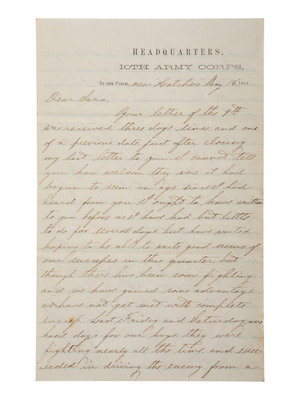 HEADQUARTERS,
10TH ARMY CORPS,
IN THE FIELD, near Hatcher's May 16 1864
Dear Sara.
Your letter of the 9th
was received three days since and one
of a previous date just after closing
my last letter to you. I cannot tell
you how welcome they were it had
begun to seem an age since I had
heard from you. I ought to have written
to you before as I have had but little
to do for several days but have waited
hoping to be able to write good news of
our successes in this quarter but
though there has been some fighting
and we have gained some advantage
we have not yet met with complete
success. Last Friday and Saturday were
hard days for our boys they were
fighting nearly all the time and succ
eeded in driving the enemy from a